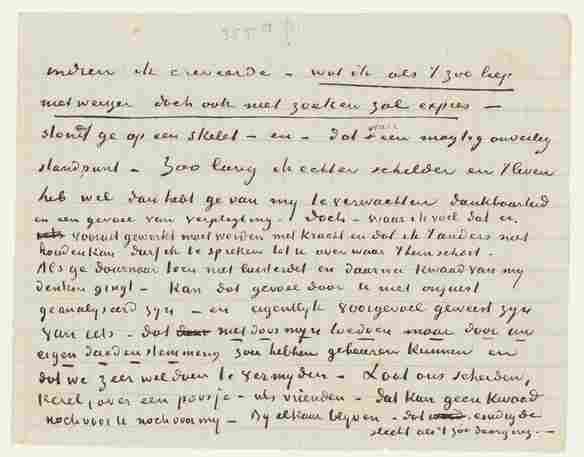 indien ik creveerde – wat ik als 't zoo liep
niet weiger doch ook niet zoeken zal expres –
stondt ge op een skelet – en – dat waar een magtig onveilig
standpunt – Zoo lang ik echter schilder en 't leven
heb wel dan hebt ge van my te verwachten dankbaarheid
en een gevoel van verpligting. – doch – waar ik voel dat er
vooruit gewerkt moet worden met kracht en dat ik 't anders niet
houden kan durf ik te spreken tot u over waar 't hem scheelt.
Als ge daarnaar toen niet luisterdet en daarvan kwaad van my
denken gingt – Kan dat gevoel door u niet onjuist
geanalyseerd zyn – en eigentlyk voorgevoel geweest zyn
van iets – dat niet door myn toedoen maar door uw
eigen daad en stemming zou hebben gebeuren kunnen en
dat we zeer wel doen te vermyden – Laat ons scheiden,
kerel, voor een poosje – als vrienden – dat kan geen kwaad
noch voor u noch voor my – By elkaar blyven – dat eindigde
slecht als 't zoo doorging. –